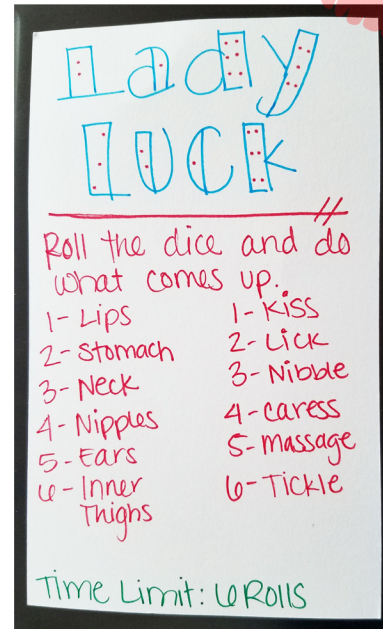 Lady
Luck
Roll the dice and do
what comes up.
1- Lips
2- Stomach
3- Neck
4- Nipples
5- Ears
6- Inner
Thighs
1- Kiss
2- Lick
3- Nibble
4- caress
5- massage
6- Tickle
Time Limit: 6 Rolls